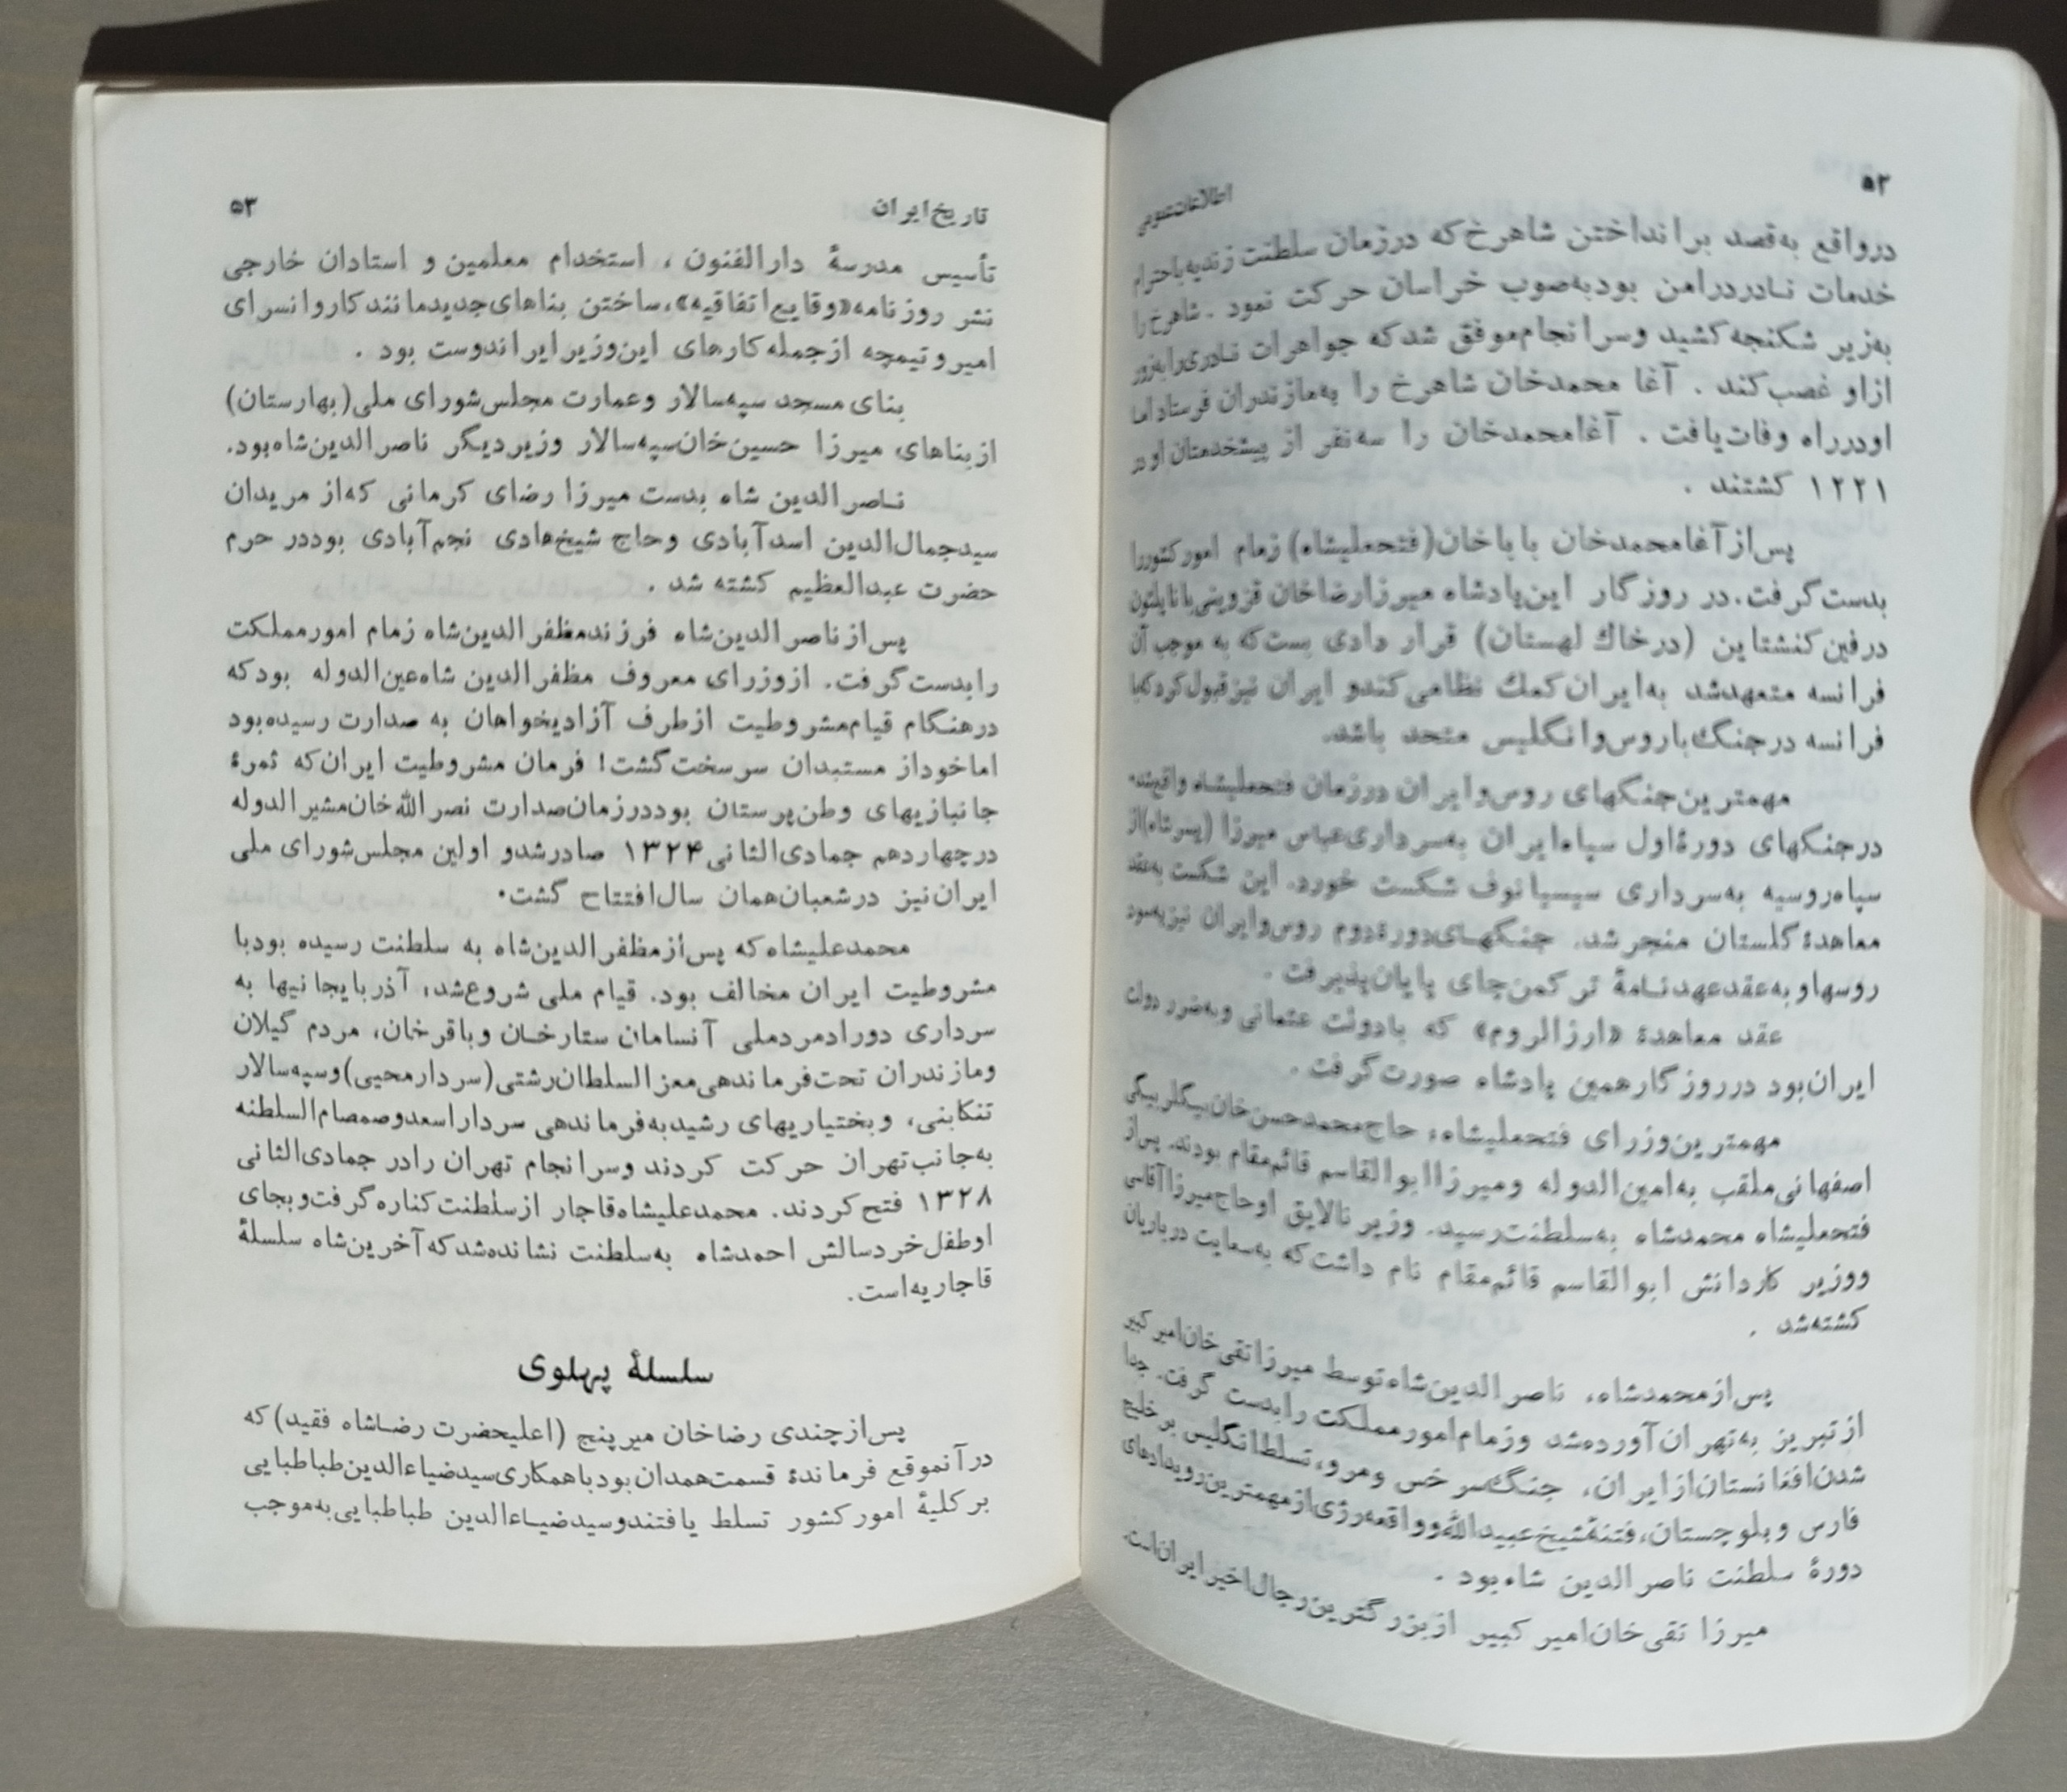 ۵۲
اطلاعات عمومی
درواقع به‌قصد برانداختن شاهرخ که درزمان سلطنت زندیه باحترام
خدمات نادردرامن بودبه‌صوب خراسان حرکت نمود . شاهرخ را
به‌زیر شکنجه کشید وسرانجام‌موفق شدکه جواهرات نادری رابه‌زور
ازاو غصب‌کند . آغا محمدخان شاهرخ را به‌مازندران فرستاد اما
اودرراه وفات‌یافت . آغامحمدخان را سه‌نفر از پیشخدمتان اودر
۱۲۲۱ کشتند .
پس‌ازآغامحمدخان باباخان(فتحعلیشاه) زمام امورکشوررا
بدست گرفت.در روزگار این‌پادشاه میرزارضاخان قزوینی‌با ناپلئون
درفین‌کنشتاین (درخاك لهستان) قرار دادی بست‌که به موجب آن
فرانسه متعهدشد به‌ایران‌کمك نظامی‌کندو ایران نیزقبول‌کردکه‌با
فرانسه درجنگ‌باروس‌وانگلیس متحد باشد.
مهمترین‌جنگهای روس‌وایران درزمان فتحعلیشاه واقع‌شد.
درجنگهای دورهٔ‌اول سپاه‌ایران به‌سرداری‌عباس میرزا (پسرشاه)از
سپاه‌روسیه به‌سرداری سیسیانوف شکست خورد. این شکست به‌عقد
معاهدهٔ گلستان منجرشد. جنگهای‌دورهٔ‌دوم روس‌وایران نیزبه‌سود
روسهاوبه‌عقدعهدنامهٔ ترکمن‌چای پایان‌پذیرفت .
عقد معاهدهٔ «ارزالروم» که بادولت عثمانی وبه‌ضرر دولت
ایران‌بود درروزگارهمین پادشاه صورت‌گرفت .
مهمترین‌وزرای فتحعلیشاه، حاج‌محمدحسن‌خان‌بیگلربیگی
اصفهانی‌ملقب به‌امین‌الدوله ومیرزاابوالقاسم قائم‌مقام بودند. پس‌از
فتحعلیشاه محمدشاه به‌سلطنت‌رسید. وزیر نالایق اوحاج‌میرزاآقاسی
ووزیر کاردانش ابوالقاسم قائم‌مقام نام داشت‌که به‌سعایت درباریان
کشته‌شد .
پس‌ازمحمدشاه، ناصرالدین‌شاه‌توسط میرزاتقی‌خان‌امیرکبیر
ازتبریز به‌تهران‌آورده‌شد وزمام‌امورمملکت رابدست گرفت. جدا
شدن‌افغانستان‌ازایران، جنگ‌سرخس ومرو، تسلط‌انگلیس برخلیج
فارس وبلوچستان،فتنهٔ‌شیخ‌عبیدالله‌وواقعه‌رژی‌ازمهمترین‌رویدادهای
دورهٔ سلطنت ناصرالدین شاه‌بود .
میرزا تقی‌خان‌امیرکبیر ازبزرگترین‌رجال‌اخیرایران‌است.
تاریخ‌ایران
۵۳
تأسیس مدرسهٔ دارالفنون ، استخدام معلمین و استادان خارجی
نشر روزنامه«وقایع‌اتفاقیه»،ساختن بناهای‌جدیدمانندکاروانسرای
امیروتیمچه ازجمله‌کارهای این‌وزیرایراندوست بود .
بنای مسجد سپه‌سالار وعمارت مجلس‌شورای ملی(بهارستان)
ازبناهای میرزا حسین‌خان‌سپه‌سالار وزیردیگر ناصرالدین‌شاه‌بود.
ناصرالدین شاه بدست میرزا رضای کرمانی که‌از مریدان
سیدجمال‌الدین اسدآبادی وحاج شیخ‌هادی نجم‌آبادی بوددر حرم
حضرت عبدالعظیم کشته شد .
پس‌ازناصرالدین‌شاه فرزندمظفرالدین‌شاه زمام امورمملکت
رابدست‌گرفت. ازوزرای معروف مظفرالدین شاه‌عین‌الدوله بودکه
درهنگام قیام‌مشروطیت ازطرف آزادیخواهان به صدارت رسیده‌بود
اماخوداز مستبدان سرسخت‌گشت! فرمان مشروطیت ایران‌که ثمرهٔ
جانبازیهای وطن‌پرستان بوددرزمان‌صدارت نصرالله‌خان‌مشیرالدوله
درچهاردهم جمادی‌الثانی۱۳۲۴ صادرشدو اولین مجلس‌شورای ملی
ایران‌نیز درشعبان‌همان سال‌افتتاح گشت.
محمدعلیشاه‌که پس‌ازمظفرالدین‌شاه به سلطنت رسیده بودبا
مشروطیت ایران مخالف بود. قیام ملی شروع‌شد، آذربایجانیها به
سرداری دورادمردملی آنسامان ستارخان وباقرخان، مردم گیلان
ومازندران تحت‌فرماندهی‌معزالسلطان‌رشتی(سردارمحیی)وسپه‌سالار
تنکابنی، وبختیاریهای رشیدبه‌فرماندهی سرداراسعدوصمصام‌السلطنه
به‌جانب‌تهران حرکت کردند وسرانجام تهران رادر جمادی‌الثانی
۱۳۲۸ فتح‌کردند. محمدعلیشاه‌قاجار ازسلطنت‌کناره‌گرفت‌وبجای
اوطفل‌خردسالش احمدشاه به‌سلطنت نشانده‌شدکه‌آخرین‌شاه سلسلهٔ
قاجاریه‌است.
سلسلهٔ پهلوی
پس‌ازچندی رضاخان میرپنج (اعلیحضرت رضاشاه فقید)که
درآنموقع فرماندهٔ قسمت‌همدان‌بودباهمکاری‌سیدضیاءالدین‌طباطبایی
برکلیهٔ امورکشور تسلط یافتندوسیدضیاءالدین طباطبایی‌به‌موجب